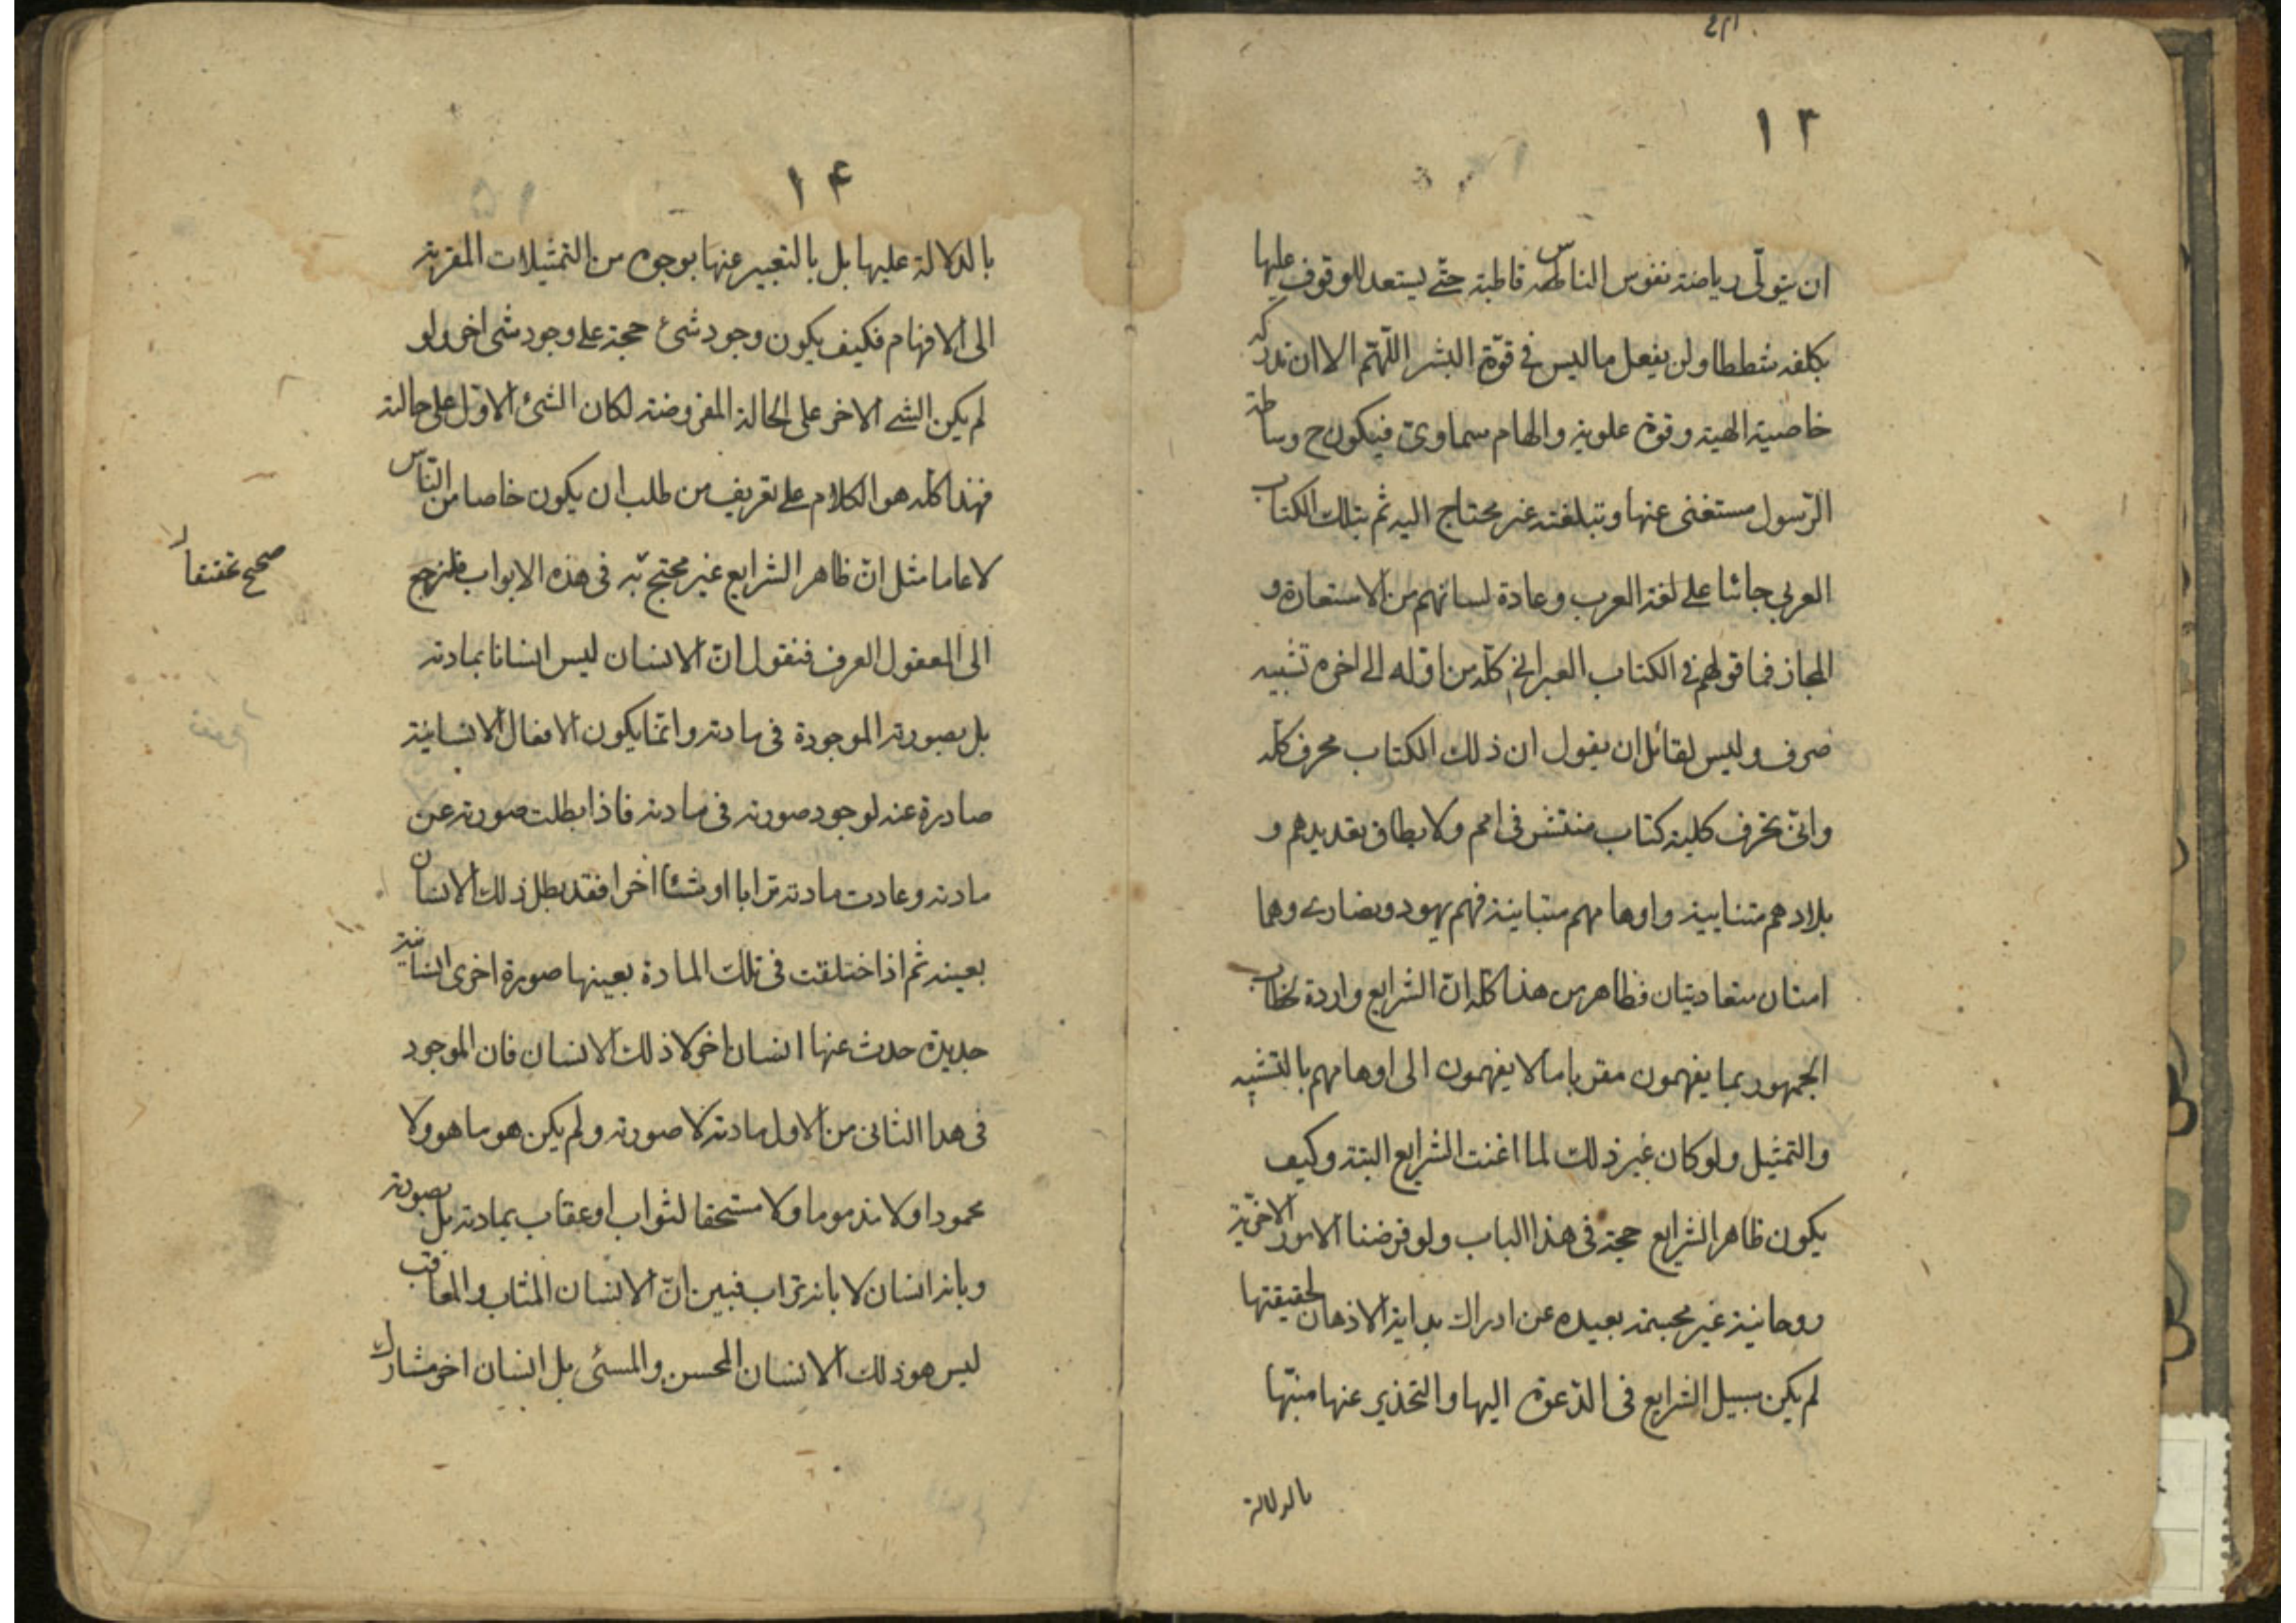 ١٣
ان يتولّى رياضة نفوس الناس قاطبة حتّے يستعد للوقوف عليها
يكلفه شططا ولن يفعل ما ليس فے قوّة البشر اللّهمّ الا ان تدركه
خاصية الهية وقوة علوية والهام سماوىّ فيكون ح وساطة
الرّسول مستغنى عنها وتبليغته غير محتاج اليه ثم بتلك الكتاب
العربى جائنا علے لغة العرب وعادة لسانهم من الاستعارة و
المجاز فما قولهم فے الكتاب العبرانى كلّه من اوّله الے اخره تشبيه
صرف وليس لقائل ان يقول ان ذلك الكتاب محرف كلّه
وانّى يحرف كلية كتاب منتشر فى امم ولا يطاق تعديدهم و
بلادهم متنايية واوهامهم متباينة فهم يهود ونصارے وهما
امتان متعاديتان فظاهر من هذا كلّه انّ الشرايع واردة لخطاب
الجمهور بما يفهمون مقربا ما لا يفهمون الى اوهامهم بالتشبيه
والتمثيل ولو كان غير ذلك لما اغنت الشرايع البتة وكيف
يكون ظاهر الشرايع حجة فى هذا الباب ولو فرضنا الامور الاخرّية
روحانية غير مجسمة بعيده عن ادراك بداية الاذهان لحقيقتها
لم يكن سبيل الشرايع فى الدّعوة اليها والتحذير عنها منبّها
بالدلالة
١۴
بالدلالة عليها بل بالتعبير عنها بوجوه من التمثيلات المقربة
الى الافهام فكيف يكون وجود شىء حجة علے وجود شى اخر ولو
لم يكن الشے الاخر على الحالة المفروضة لكان الشئ الاوّل على حالته
فهذا كله هو الكلام علے تعريف من طلب ان يكون خاصا من النّاس
لا عاما مثل انّ ظاهر الشرايع غير محتج به فى هذه الابواب فلنرجع
صحيح
الى المعقول العرف فنقول انّ الانسان ليس انسانا بمادته
بل بصورته الموجودة فى مادته وانّما يكون الافعال الانسانية
صادرة عنه لوجود صورته فى مادته فاذا بطلت صورته عن
مادته وعادت مادته ترابا او شئا اخرا فقد بطل ذلك الانسان
بعينه ثم اذا ختلقت فى تلك المادة بعينها صورة اخرى انسانية
جديدة حدث عنها انسان اخر لا ذلك الانسان فان الموجود
فى هذا الثانى من الاول مادته لا صورته ولم يكن هو ما هو ولا
محمودا ولا مذموما ولا مستحقا لثواب او عقاب بمادته بل بصورته
وبانه انسان لا بانه تراب فبين انّ الانسان المثاب والمعاقب
ليس هو ذلك الانسان المحسن والمسئى بل انسان اخر مشارك